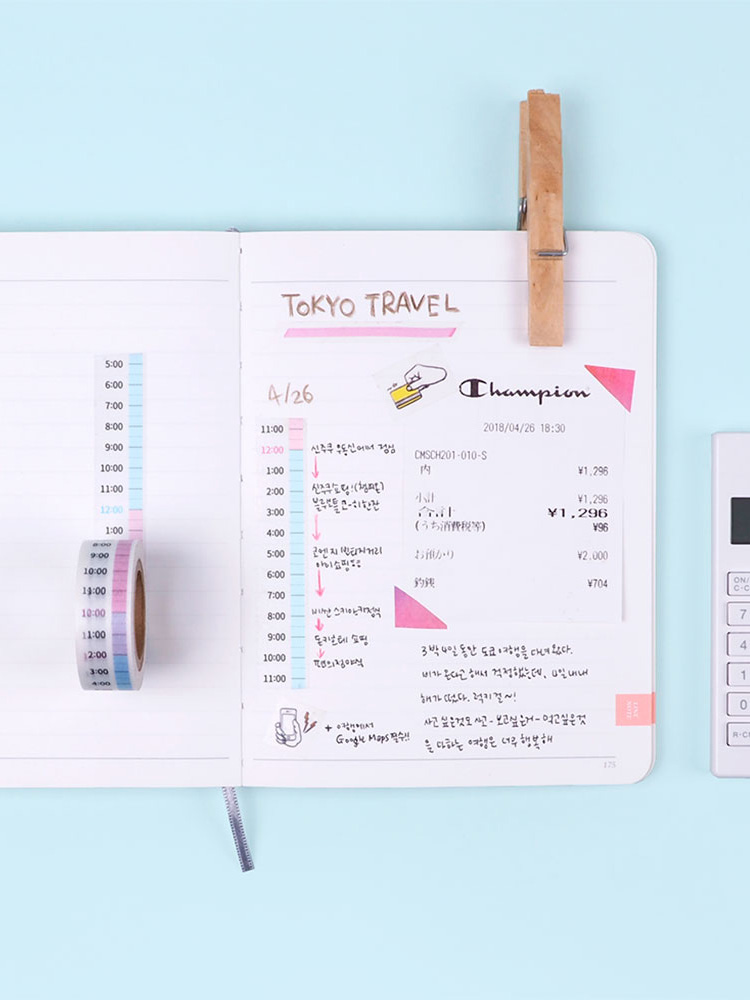 5:00
6:00
7:00
8:00
9:00
10:00
11:00
12:00
1:00
8:00
9:00
10:00
11:00
11:00
2:00
3:00
4:00
TOKYO TRAVEL
4/26
11:00
12:00
1:00
2:00
3:00
4:00
5:00
6:00
7:00
8:00
9:00
10:00
11:00
신주쿠 우동신에서 점심
신주쿠쇼핑!(챔피온)
블루보틀 코-히한잔
코엔지 빈티지거리
아이쇼핑
비싼 스키야키정식
돈키호테 쇼핑
편의점야식
+ 여행에서
Google Maps 필수!!
Champion
2018/04/26 18:30
CMSCH201-010-S
内 ¥1,296
小計 ¥1,296
合計 ¥1,296
(うち消費税等) ¥96
お預かり ¥2,000
釣銭 ¥704
3박 4일 동안 도쿄여행을 다녀왔다.
비가 온다고 해서 걱정했는데, 4일 내내
해가 떴다. 럭키걸~!
사고 싶은것도 사고 - 보고싶은거 - 먹고싶은것
을 다하는 여행은 너무 행복해
LINE
NOTE
175
ON/
C·CE
7
4
1
0
R·CM